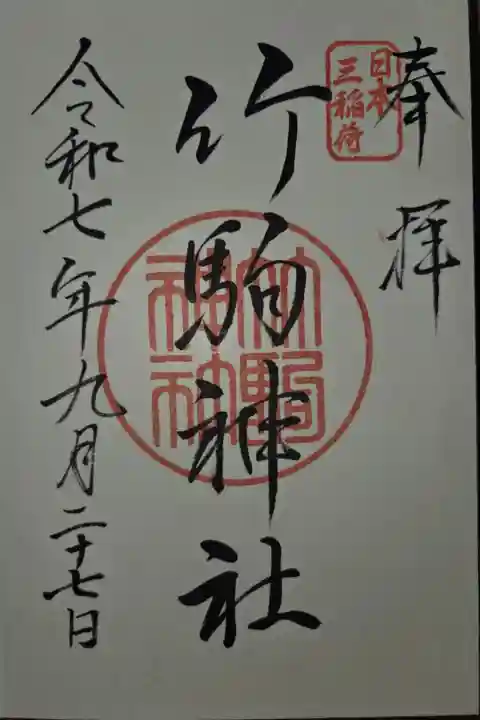 奉拝
日本
三稲荷
竹駒神社
竹駒
神社
令和七年九月二十七日